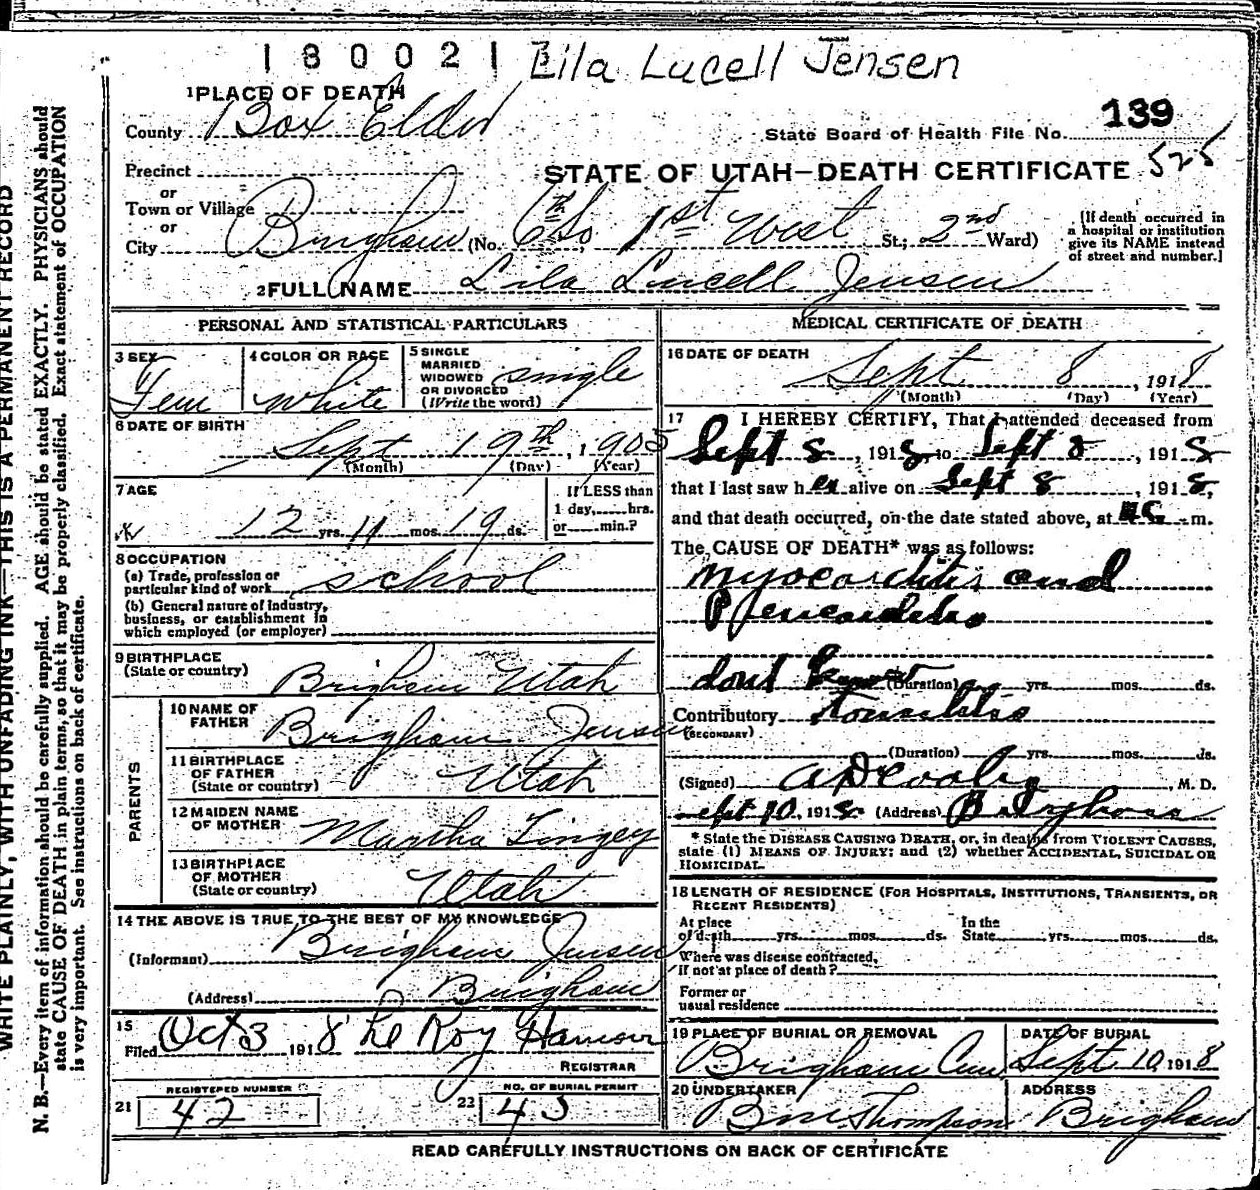 1800211 Lila Lucell Jensen
1 PLACE OF DEATH
County Box Elder
State Board of Health File No. 139
Precinct
STATE OF UTAH—DEATH CERTIFICATE 525
or
Town or Village
or
City Brigham (No. 6th So 1st West St.; 2nd Ward)
[If death occurred in
a hospital or institution
give its NAME instead
of street and number.]
2 FULL NAME Lila Lucell Jensen
PERSONAL AND STATISTICAL PARTICULARS
3 SEX
Fem
4 COLOR OR RACE
White
5 SINGLE
MARRIED
WIDOWED
OR DIVORCED
(Write the word)
single
6 DATE OF BIRTH
Sept 19th, 1905
(Month) (Day) (Year)
7 AGE
12 yrs. 11 mos. 19 ds.
If LESS than
1 day, hrs.
or min.?
8 OCCUPATION
(a) Trade, profession or
particular kind of work school
(b) General nature of Industry,
business, or establishment in
which employed (or employer)
9 BIRTHPLACE
(State or country) Brigham Utah
PARENTS
10 NAME OF
FATHER Brigham Jensen
11 BIRTHPLACE
OF FATHER
(State or country) Utah
12 MAIDEN NAME
OF MOTHER Martha Tingey
13 BIRTHPLACE
OF MOTHER
(State or country) Utah
14 THE ABOVE IS TRUE TO THE BEST OF MY KNOWLEDGE
(Informant) Brigham Jensen
(Address) Brigham
15
Filed Oct 3 1918 Le Roy Hansen
REGISTRAR
REGISTERED NUMBER
21 42
NO. OF BURIAL PERMIT
22 45
MEDICAL CERTIFICATE OF DEATH
16 DATE OF DEATH
Sept 8, 1918
(Month) (Day) (Year)
17 I HEREBY CERTIFY, That I attended deceased from
Sept 8, 1918, to Sept 8, 1918
that I last saw her alive on Sept 8, 1918,
and that death occurred, on the date stated above, at m.
The CAUSE OF DEATH* was as follows:
Myocarditis and
Pericarditis
dont know (Duration) yrs. mos. ds.
Contributory Tonsilitis
(SECONDARY)
(Duration) yrs. mos. ds.
(Signed) A D Cooley, M. D.
Sept 10, 1918 (Address) Brigham
* State the DISEASE CAUSING DEATH, or, in deaths from VIOLENT CAUSES,
state (1) MEANS OF INJURY; and (2) whether ACCIDENTAL, SUICIDAL OR
HOMICIDAL.
18 LENGTH OF RESIDENCE (FOR HOSPITALS, INSTITUTIONS, TRANSIENTS, OR
RECENT RESIDENTS)
At place
of death yrs. mos. ds.
In the
State yrs. mos. ds.
Where was disease contracted,
if not at place of death?
Former or
usual residence
19 PLACE OF BURIAL OR REMOVAL
Brigham Cem
DATE OF BURIAL
Sept. 10, 1918
20 UNDERTAKER
Thompson
ADDRESS
Brigham
READ CAREFULLY INSTRUCTIONS ON BACK OF CERTIFICATE
WRITE PLAINLY, WITH UNFADING INK—THIS IS A PERMANENT RECORD
N. B.—Every item of information should be carefully supplied. AGE should be stated EXACTLY. PHYSICIANS should
state CAUSE OF DEATH in plain terms, so that it may be properly classified. Exact statement of OCCUPATION
is very important. See instructions on back of certificate.